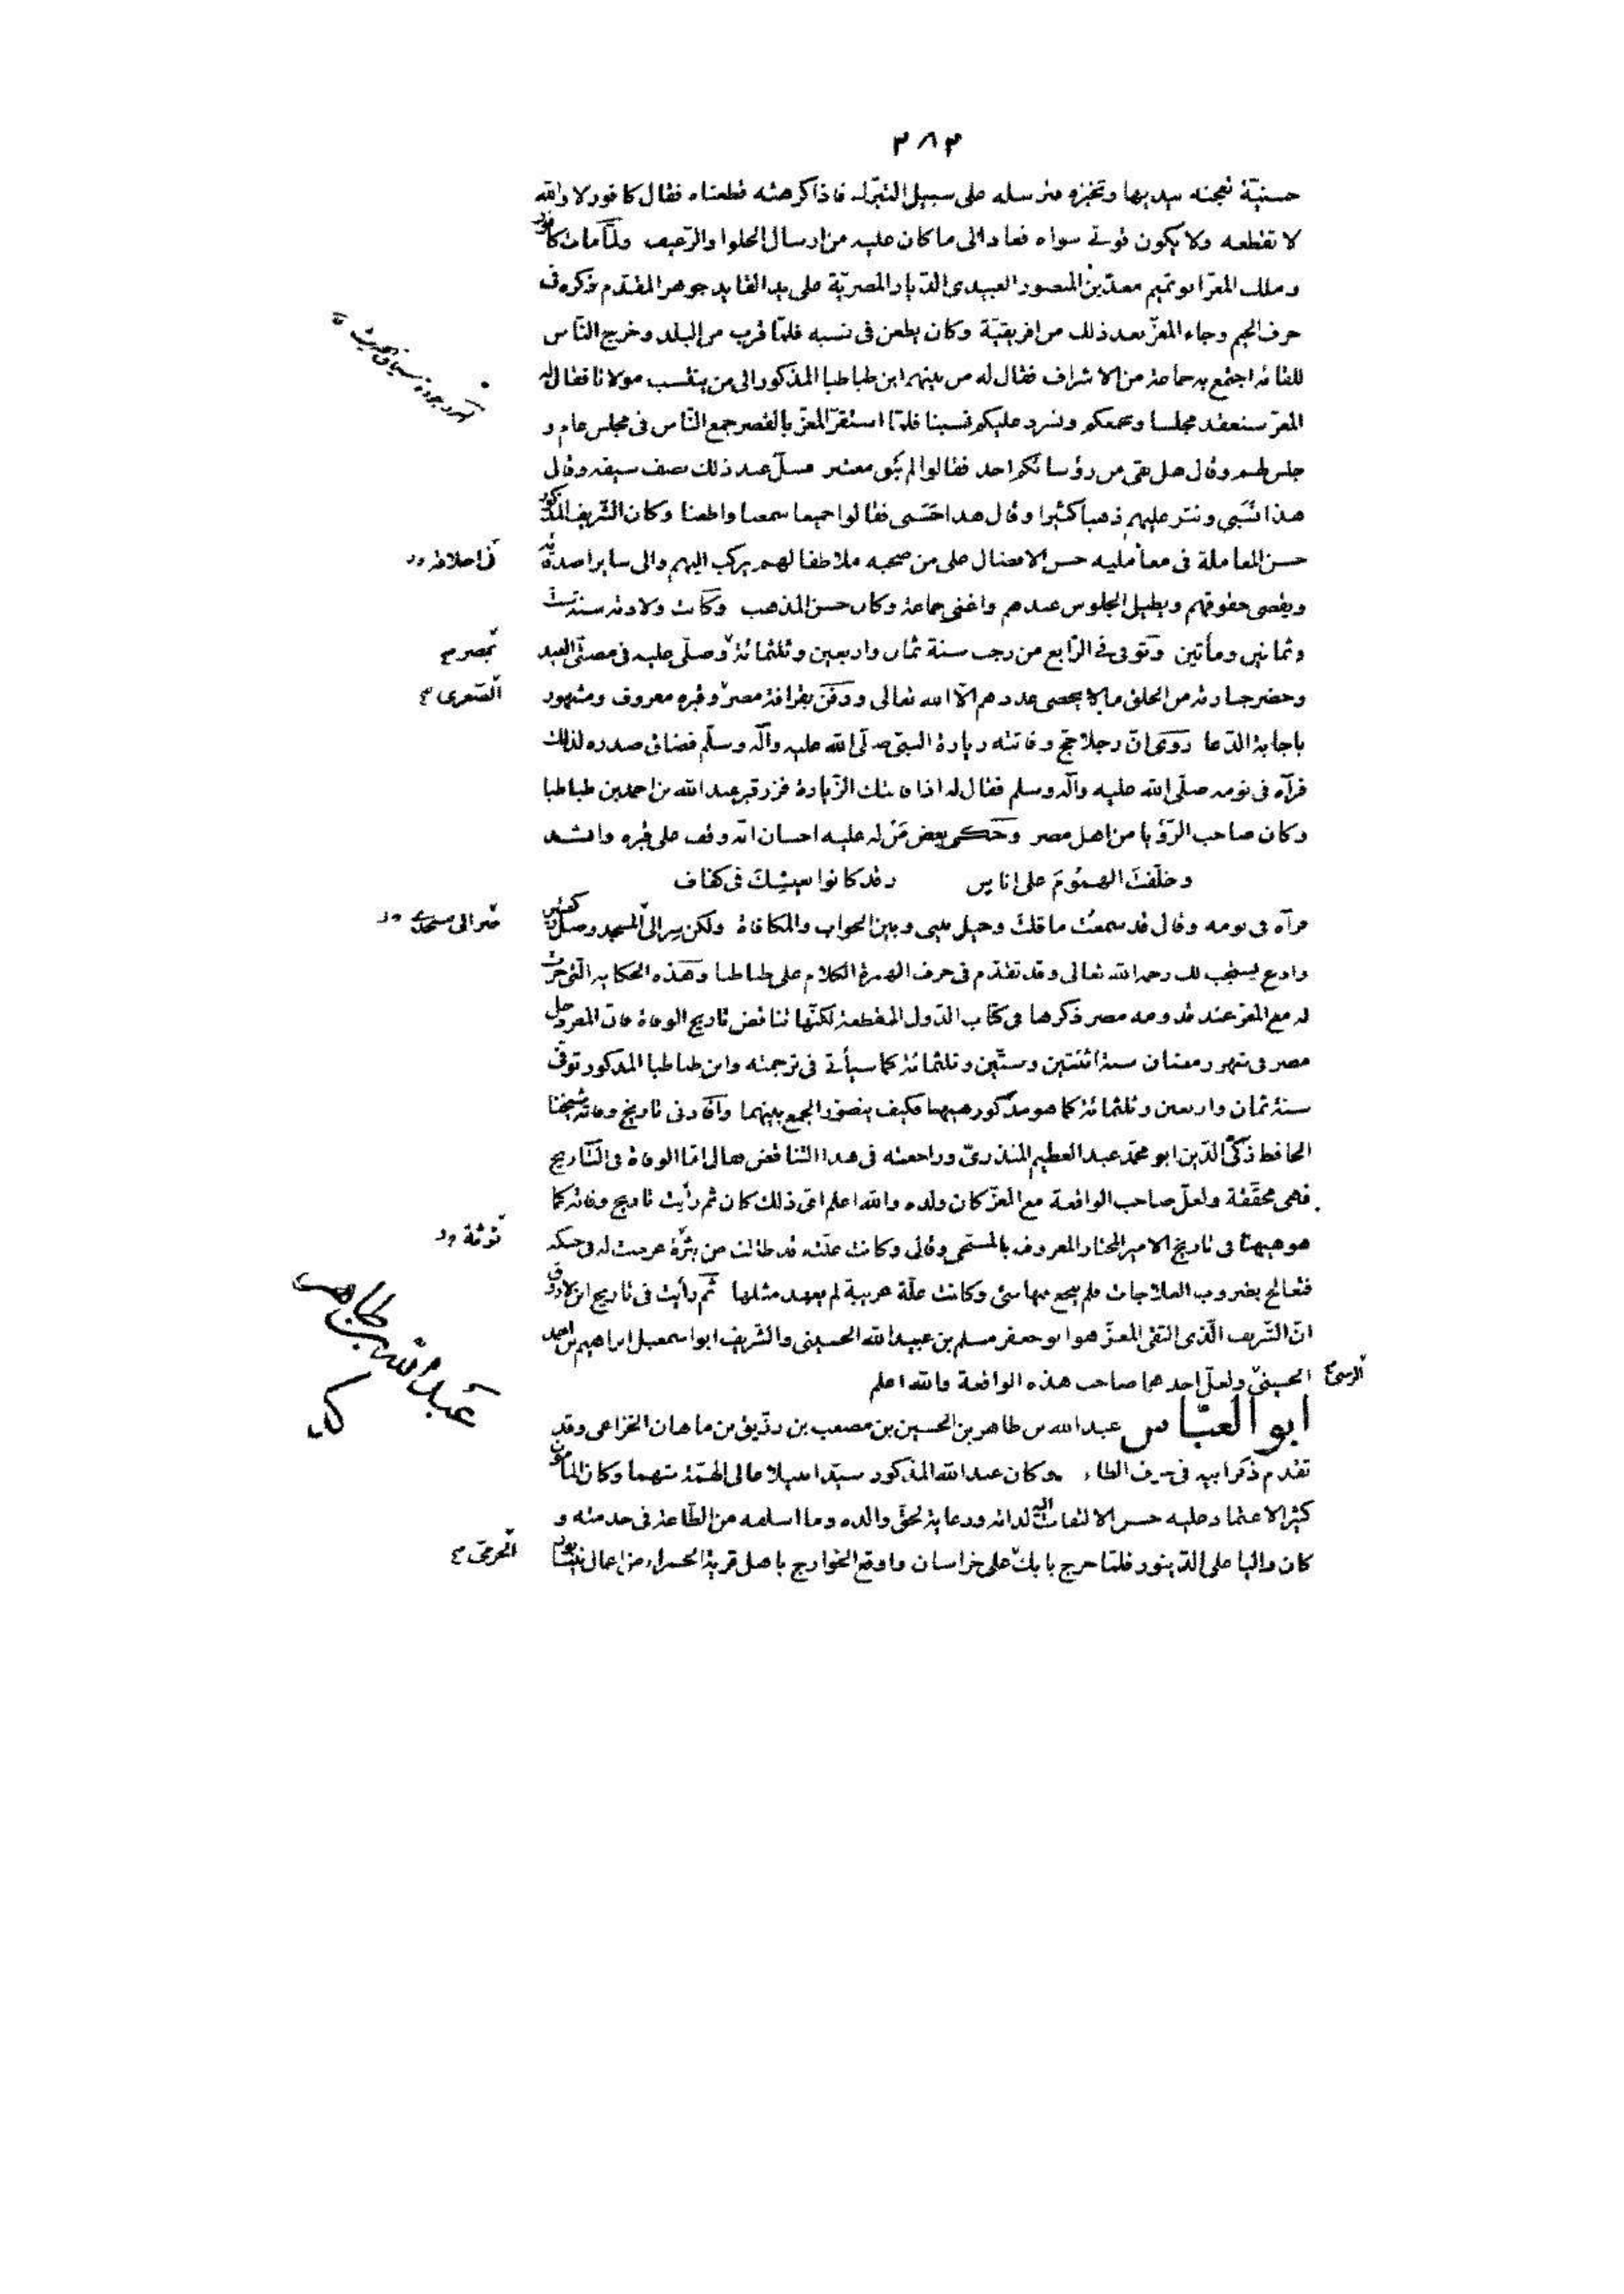 ٣٨٣
حسنيّة تعجنه بيديها وتخبزه فترسله على سبيل التبرّك فاذا كرهته قطعناه فقال كافور لا والله
لا تقطعه ولا يكون قوتى سواه فعاد الى ما كان عليه من ارسال الحلوا والرغيف ولمّا مات كافور
وملك المعزّ ابو تميم معدّ بن المنصور العبيدى الدّيار المصريّة على يد القايد جوهر المقدّم ذكره فى
حرف الجيم وجاء المعزّ بعد ذلك من افريقيّة وكان يطعن فى نسبه فلمّا قرب من البلد وخرج النّاس
للقائه اجتمع به جماعة من الاشراف فقال له من بينهم ابن طباطبا المذكور الى من ينتسب مولانا فقال له
المعزّ سنعقد مجلسا ونجمعكم ونسرد عليكم نسبنا فلمّا استقرّ المعزّ بالقصر جمع النّاس فى مجلس عام و
جلس لهم وقال هل بقى من رؤسائكم احد فقالوا لم يبق معتبر فسلّ عند ذلك نصف سيفه وقال
هذا نسَبى ونثر عليهم ذهبا كثيرا وقال هذا حَسَبى فقالوا جميعا سمعنا واطعنا وكان الشّريف المذكور
حسن المعاملة فى معامليه حسن الافضال على من صحبه ملاطفا لهم يركب اليهم والى ساير اصدقائه
فى اخلاقه
ويقضى حقوقهم ويطيل الجلوس عندهم واغنى جماعة وكان حسن المذهب وكانت ولادته سنة ستّ
وثمانين ومأتين وتوفى فى الرّابع من رجب سنة ثمان واربعين وثلثمائة وصلّى عليه فى مصلّى العيد
بمصر
وحضر جنازته من الخلق ما لا يحصى عددهم الّا الله تعالى ودفن بقرافة مصر وقبره معروف ومشهور
الصّغرى
باجابة الدّعا روى انّ رجلا حجّ وفاتته زيارة النبىّ صلّى الله عليه وآله وسلّم فضاق صدره لذلك
فرآه فى نومه صلّى الله عليه وآله وسلم فقال له اذا فاتتك الزّيارة فزر قبر عبد الله بن احمد بن طباطبا
وكان صاحب الرّؤيا من اهل مصر وحكى بعض مَن له عليه احسان انّه وقف على قبره وانشد
وخلّفتَ الهمُومَ على اناس وقد كانوا بعيشِكَ فى كفاف
فرآه فى نومه وقال قد سمعتُ ما قلتَ وحيل بينى وبين الجواب والمكافاة ولكن سِر الى المسجد وصلّ ركعتين
سر الى مسجدى
وادع يستجب لك رحمه الله تعالى وقد تقدّم فى حرف الهمزة الكلام على طباطبا وهذه الحكايه الّتى جرت
له مع المعزّ عند قدومه مصر ذكرها فى كتاب الدّول المنقطعة لكنّها تناقض تاريخ الوفاة فانّ المعزّ دخل
مصر فى شهر رمضان سنة اثنتين وستّين وثلثمائة كما سيأتى فى ترجمته وابن طباطبا المذكور توفّى
سنة ثمان واربعين وثلثمائة كما هو مذكور هيهنا فكيف يتصوّر الجمع بينهما وافادنى تاريخ وفاته شيخنا
الحافظ زكىّ الدّين ابو محمّد عبد العظيم المنذرىّ وراجعته فى هذا التناقض فقال امّا الوفاة فى التّاريخ
فهى محقّقة ولعلّ صاحب الواقعة مع المعزّ كان ولده والله اعلم اىّ ذلك كان ثم رأيت تاريخ وفاته كما
هو هيهنا فى تاريخ الامير المختار المعروف بالمسبّحى وقال وكانت علّته قد طالت من بثرة عرضت له فى حنكه
توثة
فتعالج بضروب العلاجات فلم ينجع فيها شئ وكانت علّة غريبة لم يعهد مثلها ثم رأيت فى تاريخ ابن زولاق
انّ الشّريف الّذى التقى المعزّ هو ابو جعفر مسلم بن عبيد الله الحسينى والشّريف ابو اسمعيل ابراهيم بن احمد
الحسينىّ ولعلّ احدهما صاحب هذه الواقعة والله اعلم
الرسىّ
ابو العبّاس عبد الله بن طاهر بن الحسين بن مصعب بن رزيق بن ماهان الخزاعى وقد
عبد الله بن طاهر
تقدم ذكر ابيه فى حرف الطاء وكان عبد الله المذكور سيّدا نبيلا عالى الهمّة شهما وكان المأمون
كثير الاعتماد عليه حسن الالتفات اليه لذاته ورعاية لحقّ والده وما اسلفه من الطّاعة فى خدمته و
كان واليا على الدّينور فلمّا خرج بابك على خراسان واوقع الخوارج باهل قرية الحمراء من اعمال نيسابور
الخرمى